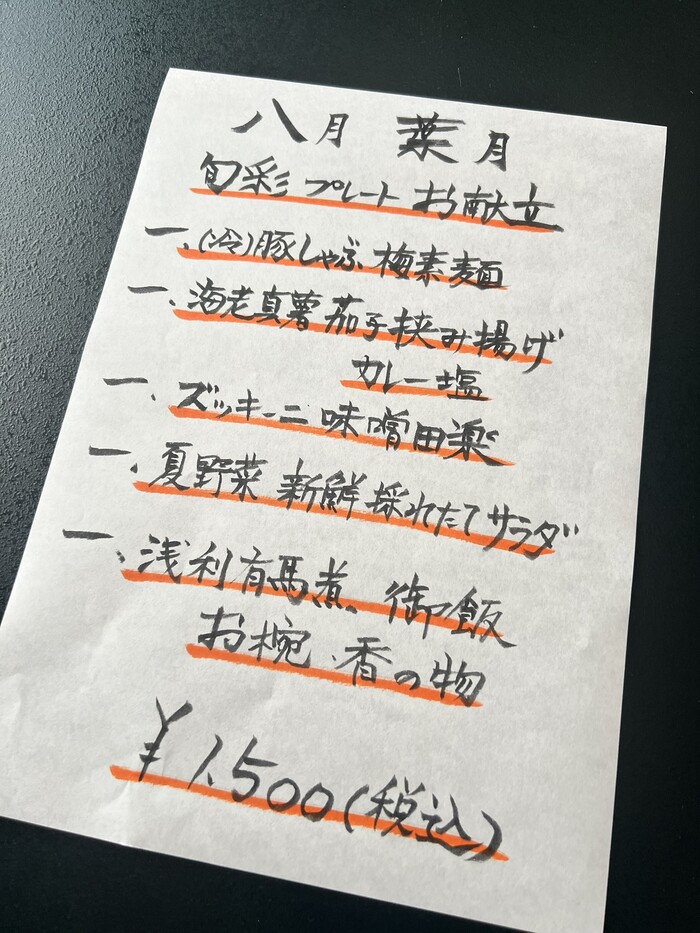 八月 葉月
旬彩プレートお献立
一、(冷)豚しゃぶ梅素麺
一、海老真薯茄子挟み揚げ
カレー塩
一、ズッキーニ味噌田楽
一、夏野菜 新鮮採れたてサラダ
一、浅利有馬煮、御飯
お椀、香の物
¥1,500(税込)